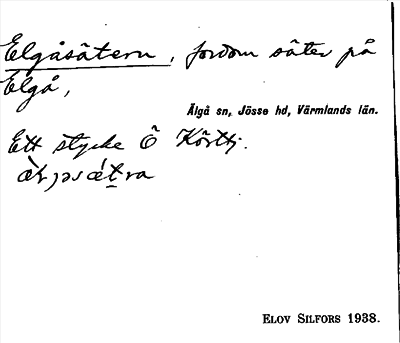 Elgåsätern, fordom säter på
Elgå,
Älgå sn, Jösse hd, Värmlands län.
Ett stycke Ö
ELOV SILFORS 1938.